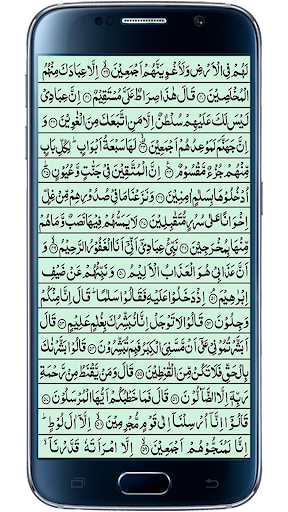 لَهُمْ فِي الْاَرْضِ وَلَاُغْوِيَنَّهُمْ اَجْمَعِيْنَ ۙ‏﴿۳۹﴾ اِلَّا عِبَادَكَ مِنْهُمُ
الْمُخْلَصِيْنَ ﴿۴۰﴾ قَالَ هٰذَا صِرَاطٌ عَلَيَّ مُسْتَقِيْمٌ ﴿۴۱﴾ اِنَّ عِبَادِيْ
لَيْسَ لَكَ عَلَيْهِمْ سُلْطٰنٌ اِلَّا مَنِ اتَّبَعَكَ مِنَ الْغٰوِيْنَ ﴿۴۲﴾
وَاِنَّ جَهَنَّمَ لَمَوْعِدُهُمْ اَجْمَعِيْنَ ﴿۴۳﴾ لَهَا سَبْعَةُ اَبْوَابٍ ؕ لِكُلِّ بَابٍ
مِّنْهُمْ جُزْءٌ مَّقْسُوْمٌ ﴿۴۴﴾ اِنَّ الْمُتَّقِيْنَ فِيْ جَنّٰتٍ وَّعُيُوْنٍ ﴿۴۵﴾
اُدْخُلُوْهَا بِسَلٰمٍ اٰمِنِيْنَ ﴿۴۶﴾ وَنَزَعْنَا مَا فِيْ صُدُوْرِهِمْ مِّنْ غِلٍّ
اِخْوَانًا عَلٰى سُرُرٍ مُّتَقٰبِلِيْنَ ﴿۴۷﴾ لَا يَمَسُّهُمْ فِيْهَا نَصَبٌ وَّمَا هُمْ
مِّنْهَا بِمُخْرَجِيْنَ ﴿۴۸﴾ نَبِّئْ عِبَادِيْ اَنِّيْ اَنَا الْغَفُوْرُ الرَّحِيْمُ ﴿۴۹﴾
وَاَنَّ عَذَابِيْ هُوَ الْعَذَابُ الْاَلِيْمُ ﴿۵۰﴾ وَنَبِّئْهُمْ عَنْ ضَيْفِ
اِبْرٰهِيْمَ ﴿۵۱﴾ اِذْ دَخَلُوْا عَلَيْهِ فَقَالُوْا سَلٰمًا ؕ قَالَ اِنَّا مِنْكُمْ
وَجِلُوْنَ ﴿۵۲﴾ قَالُوْا لَا تَوْجَلْ اِنَّا نُبَشِّرُكَ بِغُلٰمٍ عَلِيْمٍ ﴿۵۳﴾ قَالَ
اَبَشَّرْتُمُوْنِيْ عَلٰۤى اَنْ مَّسَّنِيَ الْكِبَرُ فَبِمَ تُبَشِّرُوْنَ ﴿۵۴﴾ قَالُوْا بَشَّرْنٰكَ
بِالْحَقِّ فَلَا تَكُنْ مِّنَ الْقٰنِطِيْنَ ﴿۵۵﴾ قَالَ وَمَنْ يَّقْنَطُ مِنْ رَّحْمَةِ
رَبِّهٖۤ اِلَّا الضَّآلُّوْنَ ﴿۵۶﴾ قَالَ فَمَا خَطْبُكُمْ اَيُّهَا الْمُرْسَلُوْنَ ﴿۵۷﴾
قَالُوْۤا اِنَّاۤ اُرْسِلْنَاۤ اِلٰى قَوْمٍ مُّجْرِمِيْنَ ﴿۵۸﴾ اِلَّاۤ اٰلَ لُوْطٍ ؕ
اِنَّا لَمُنَجُّوْهُمْ اَجْمَعِيْنَ ﴿۵۹﴾ اِلَّا امْرَاَتَهٗ قَدَّرْنَاۤ ۙ